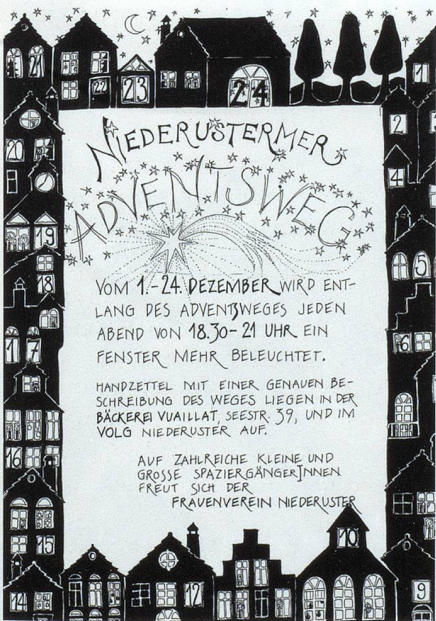 21
22
23
24
1
2
4
20
19
5
18
6
17
16
15
14
12
10
9
NIEDERUSTERMER
ADVENTSWEG
VOM 1.-24. DEZEMBER WIRD ENT-
LANG DES ADVENTSWEGES JEDEN
ABEND VON 18.30-21 UHR EIN
FENSTER MEHR BELEUCHTET.
HANDZETTEL MIT EINER GENAUEN BE-
SCHREIBUNG DES WEGES LIEGEN IN DER
BÄCKEREI VUAILLAT, SEESTR. 39, UND IM
VOLG NIEDERUSTER AUF.
AUF ZAHLREICHE KLEINE UND
GROSSE SPAZIERGÄNGERJNNEN
FREUT SICH DER
FRAUENVEREIN NIEDERUSTER